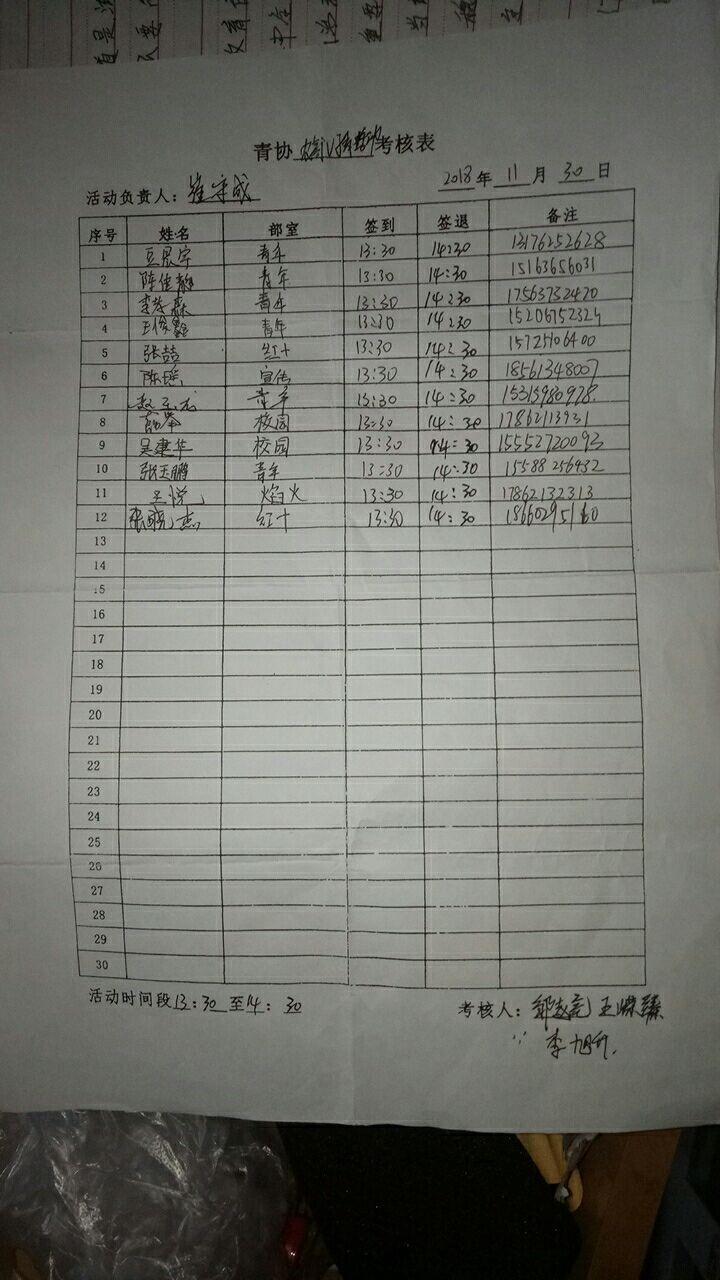 青协 考核表
活动负责人：崔守成 2018年 11 月 30 日
序号 姓名 部室 签到 签退 备注
1 青年 13:30 14:30 13176252628
2 陈佳 青年 13:30 14:30 15163656031
3 李 森 青年 13:30 14:30 17563732420
4 青年 13:30 14:30
5 张喆 红十 13:30 14:30 15725106400
6 陈瑶 宣传 13:30 14:30 18561348007
7 赵 13:30 14:30
8 校园 13:30 14:30 17862113931
9 吴建华 校园 13:30 14:30 15552720093
10 张玉鹏 青年 13:30 14:30 15588256932
11 王悦 焰火 13:30 14:30 17862132313
12 张晓杰 红十 13:30 14:30
13
14
15
16
17
18
19
20
21
22
23
24
25
26
27
28
29
30
活动时间段13:30至14:30 考核人：郭 亮 王
李旭升